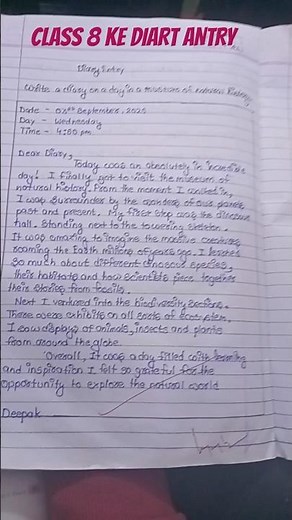 CLASS 8 KE DIART ANTRY
Diary Entry
Write a diary on a day in a museum of natural history.
Date - 03rd September, 2025
Day - Wednesday
Time - 4:00 pm
Dear Diary,
Today was an absolutely in incredible
day! I finally got to visit the museum of
natural history. From the moment I walked in,
I was surrounder by the wonders of our planets
past and present. My first stop was the dinosaur
hall. Standing next to the towering skeleton.
It was amazing to imagine the massive creatures
roaming the Earth millions of years ago. I learned
so much about different dinosaur species,
their habitats and how scientists piece together
their stories from fossils.
Next I ventured into the biodiversity sections.
There were exhibits on all sorts of ecosystem.
I saw displays of animals, insects and plants
from around the globe.
Overall, It was a day filled with learning
and inspiration I felt so grateful for the
opportunity to explore the natural world
Deepak